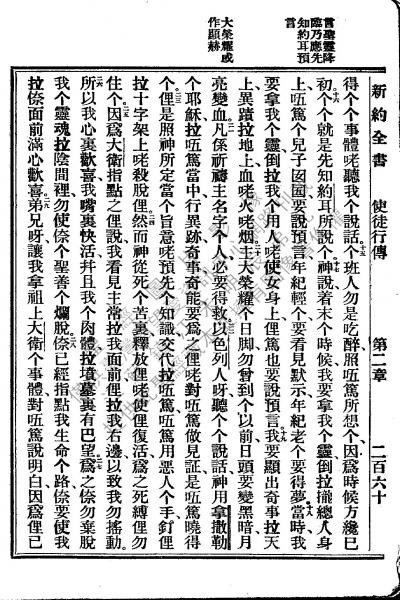 言聖靈降
臨乃應先
知約耳預
言
大榮耀或
作顯赫
新約全書 使徒行傳 第二章 二百六十
得个个事體咾聽我个說話、个班人勿是吃醉、照㕶篤所想个、因爲時候方纔巳
初个、个个就是先知約耳所說个、神說着末个時候我要拿我个靈倒拉攏總人身
上、㕶篤个兒子囡囝要說預言、年紀輕个要看見默示、年紀老个要得夢、當時我
要拿我个靈倒拉我个用人咾使女身上、俚篤也要說預言、我要顯出奇事拉天
上、異蹟拉地上、血咾火咾烟、主大榮耀个日脚勿曾到个以前、日頭要變黑暗、月
亮變血、凡係祈禱主名字个人必要得救、以色列人呀、聽个个說話、神用拿撒勒
个耶穌拉㕶篤當中行異跡奇事奇能要爲之俚咾對㕶篤做見証、是㕶篤曉得
个、俚是照神所定當个旨意咾預先个知識交代拉㕶篤、㕶篤用惡人个手釘俚
拉十字架上咾殺脫俚、然而神從死个苦裏釋放俚咾使俚復活、爲之死縛俚勿
住个、因爲大衛指點之俚說、我看見主常拉我面前、俚拉我右邊、以致我勿搖動、
所以我心裏歡喜、我嘴裏快活、幷且我个肉體拉墳墓裏有巴望、爲之倷勿棄脫
我个靈魂拉陰間裡、勿使倷个聖善个爛脫、倷已經指點我生命个路、倷要使我
拉倷面前滿心歡喜、弟兄呀、讓我拿祖上大衛个事體、對㕶篤說明白、因爲俚已